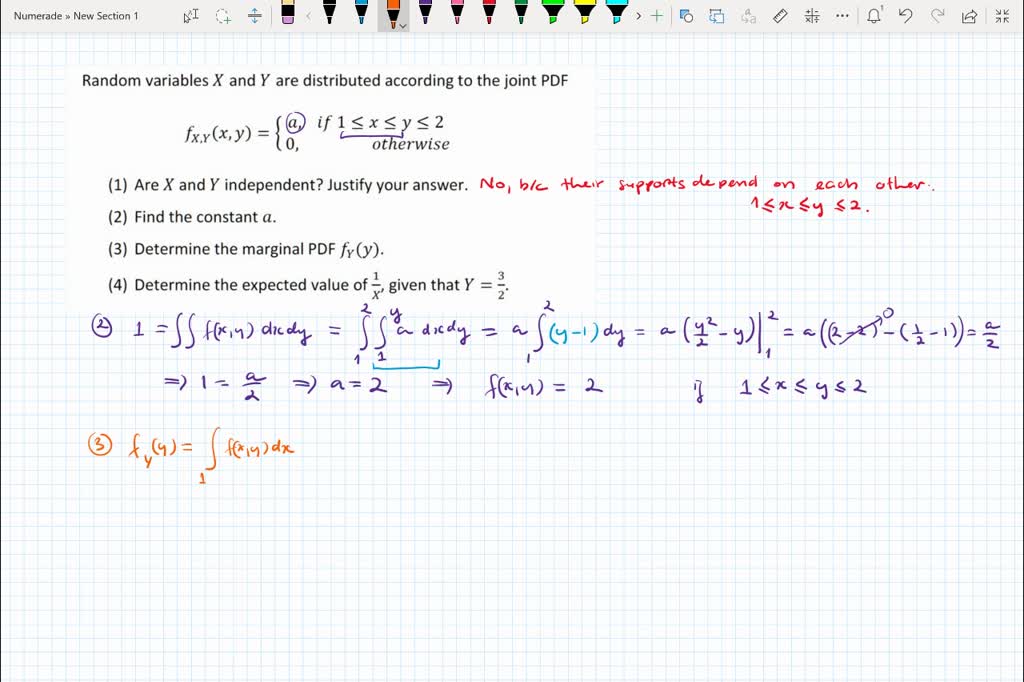 Numerade » New Section 1
Random variables X and Y are distributed according to the joint PDF
f_{X,Y}(x, y) = { a, if 1 ≤ x ≤ y ≤ 2
0, otherwise
(1) Are X and Y independent? Justify your answer. No, b/c their supports depend on each other.
1 ≤ x ≤ y ≤ 2.
(2) Find the constant a.
(3) Determine the marginal PDF f_Y(y).
(4) Determine the expected value of 1/X, given that Y = 3/2.
② 1 = ∫∫ f(x,y) dx dy = ∫_1^2 ∫_1^y a dx dy = a ∫_1^2 (y-1) dy = a (y²/2 - y)|_1^2 = a((2-2)^0 - (1/2 - 1)) = a/2
⇒ 1 = a/2 ⇒ a = 2 ⇒ f(x,y) = 2 if 1 ≤ x ≤ y ≤ 2
③ f_y(y) = ∫_1 f(x,y) dx